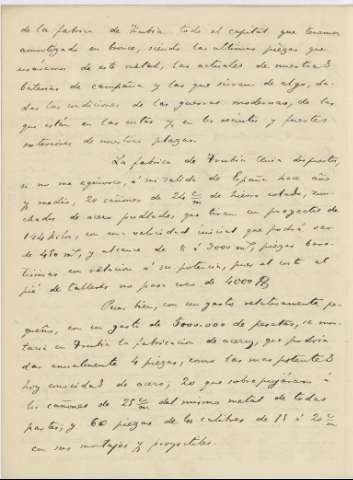 de la fabrica de Trubia todo el capital que tenemos
amortizado en bronce, siendo las ultimas piezas que
usáramos de este metal, las actuales de nuestras
baterias de campaña y las que sirvan de algo, da-
das las condiciones de las guerras modernas, de las
que están en las costas y en los recintos y fuertes
exteriores de nuestras plazas.
La fabrica de Trubia tenia dispuestos,
si no me equivoco, á mi salida de España hace año
y medio, 20 cañones de 24 c/m de hierro colado, zun-
chados de acero pudlado, que tiran un proyectil de
144 kilos, con una velocidad inicial que podrá ser
de 450 m, y alcance de 8 á 9000 m, piezas bara-
tisimas con relacion á su potencia, pues el coste al
pié de talleres no pasa creo de 4000
Pues bien, con un gasto relativamente pe-
queño, con un gasto de 5000.000 de pesetas, se mon-
taria en Trubia la fabricacion de acero, que podria
dar anualmente 4 piezas, como las mas potentes
hoy conocidas de acero; 20 que sobrepujáran á
los cañones de 25 c/m del mismo metal de todas
partes, y 60 piezas de los calibres de 15 á 20 c/m
con sus montajes y proyectiles.